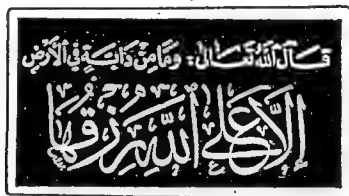 قَالَ اللهُ تَعَالَىٰ: وَمَا مِنْ دَابَّةٍ فِي الْأَرْضِ
إِلَّا عَلَى اللهِ رِزْقُهَا